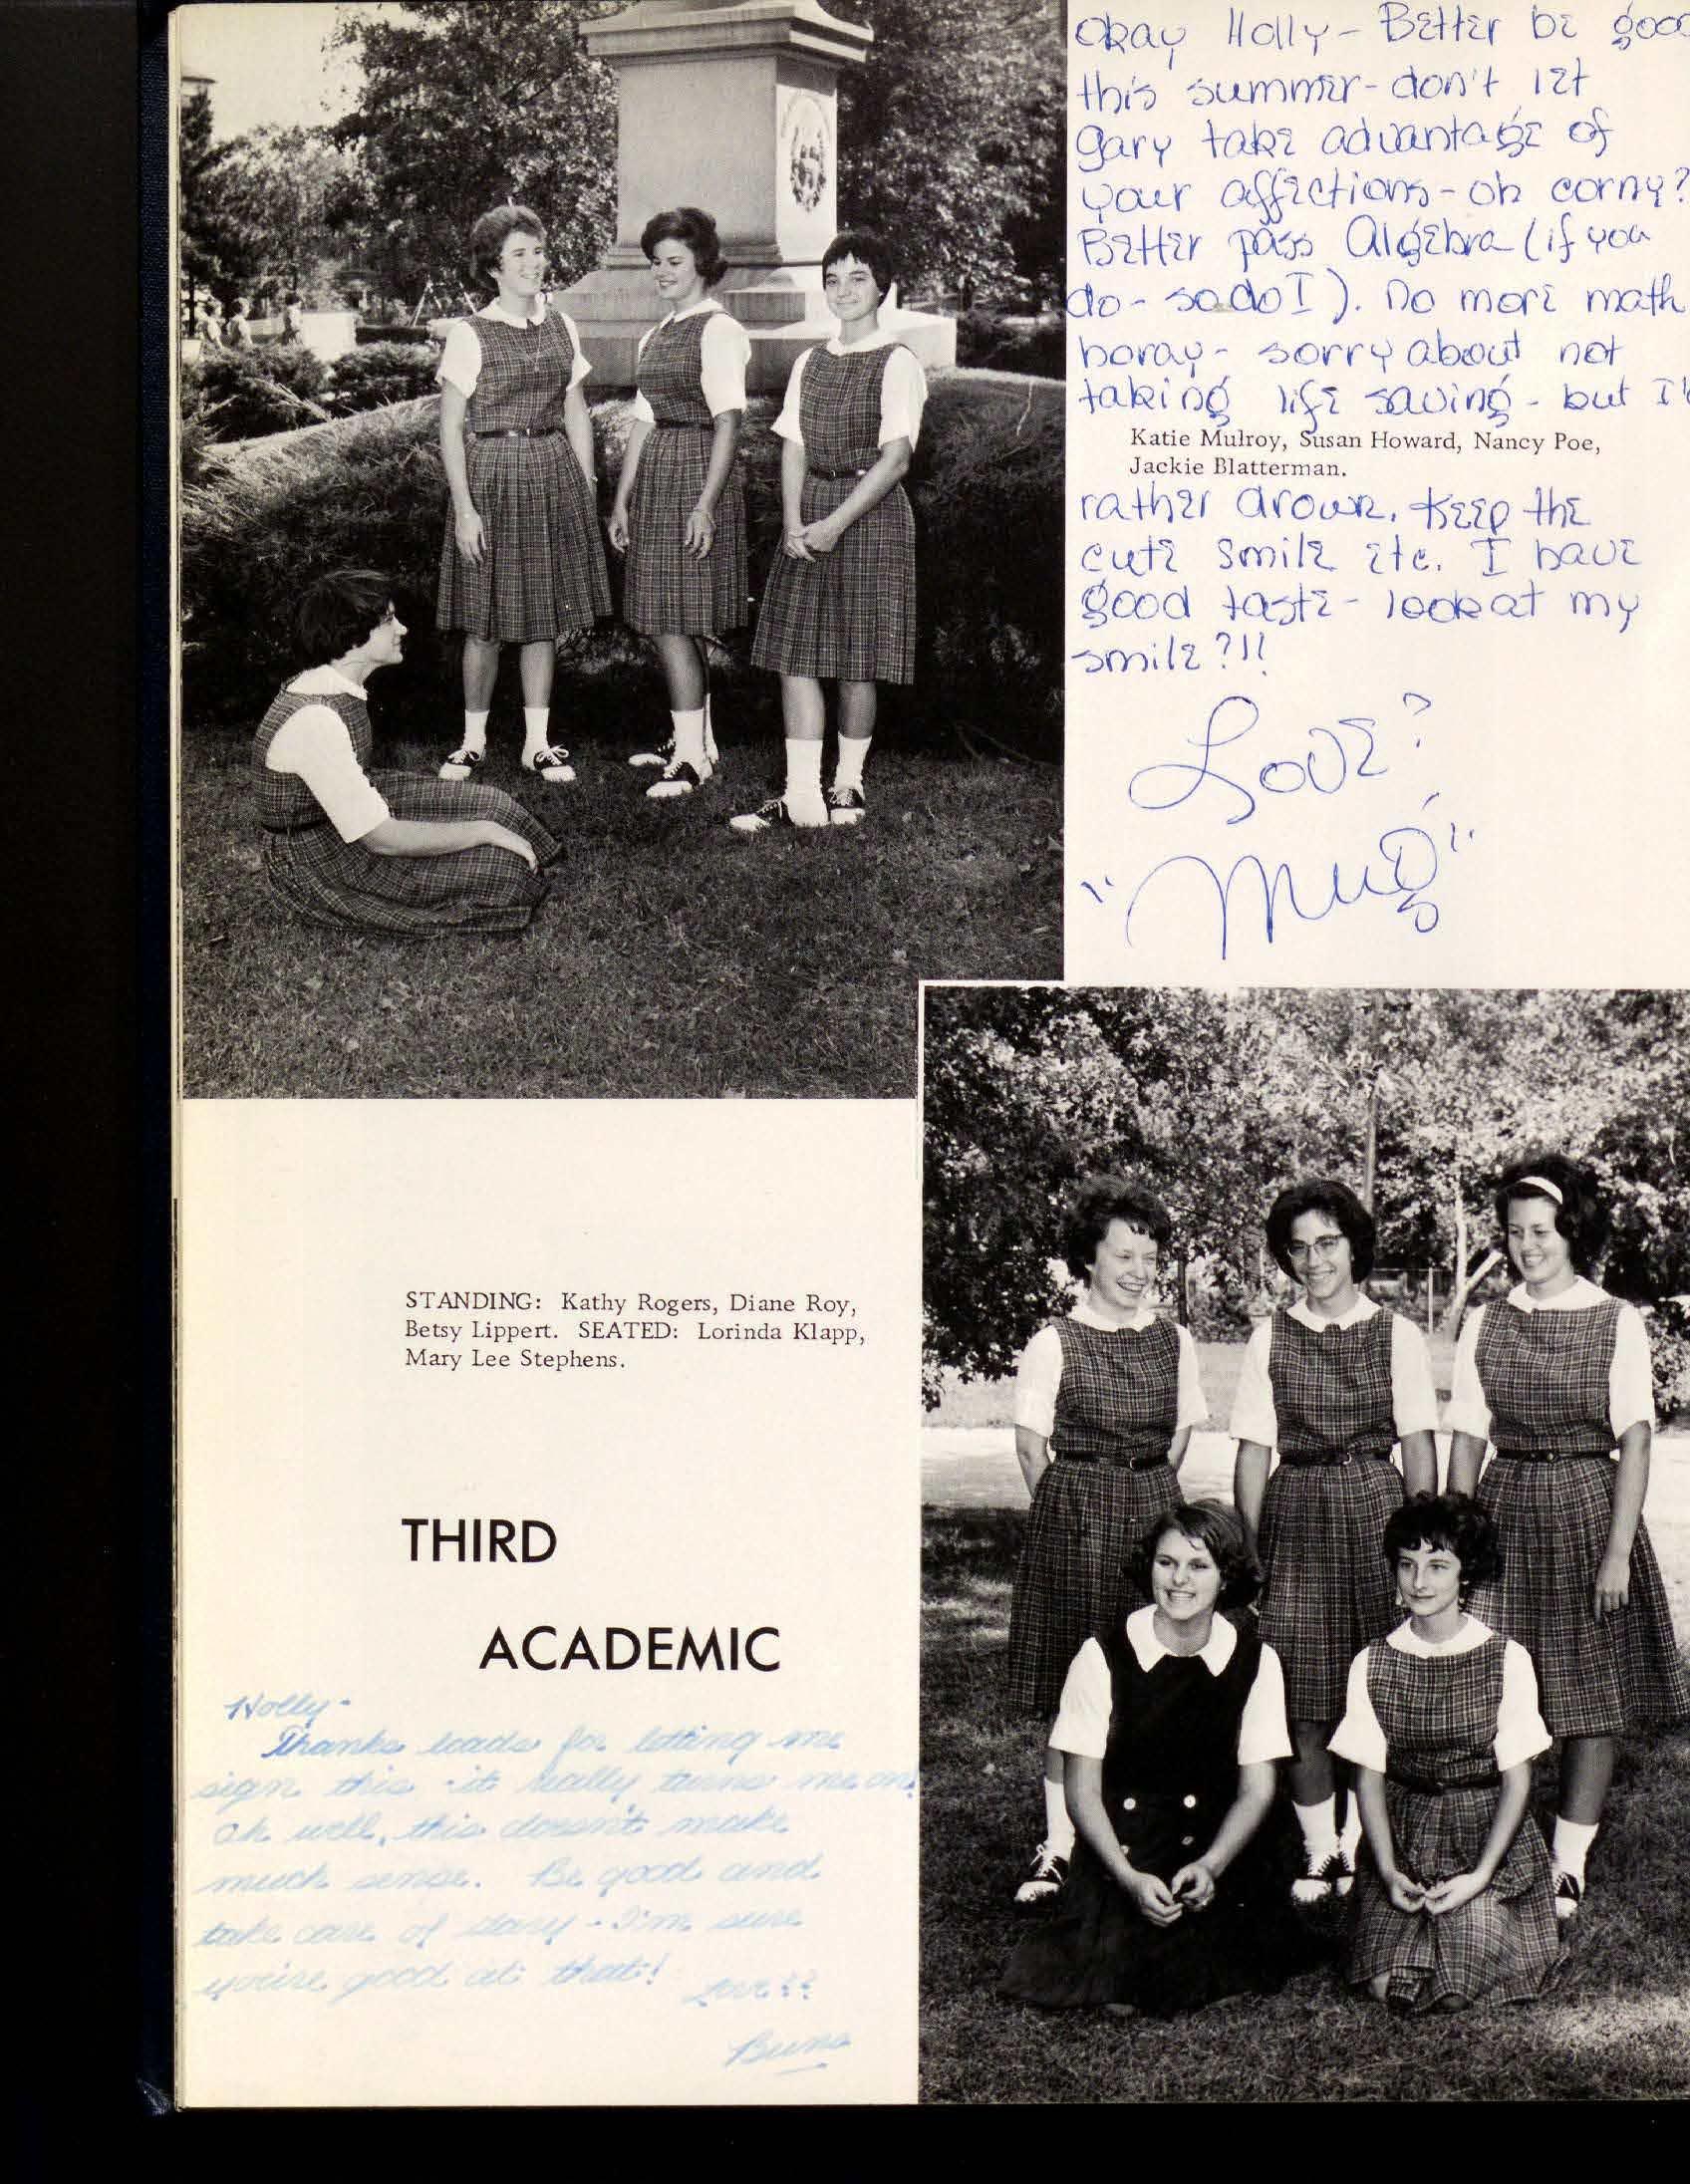 Okay Holly - Better be good
this summer - don't let
gary take advantage of
your affections - oh corny?
Better pass Algebra (if you
do - so do I). No more math
horay - sorry about not
taking life saving - but I'd
Katie Mulroy, Susan Howard, Nancy Poe,
Jackie Blatterman.
rather drown. Keep the
cute smile etc. I have
good taste - look at my
smile?!!
Love?
"Mug"
STANDING: Kathy Rogers, Diane Roy,
Betsy Lippert. SEATED: Lorinda Klapp,
Mary Lee Stephens.
THIRD
ACADEMIC
Holly -
Thanks loads for letting me
sign this - it really turns me on!
Oh well, this doesn't make
much sense. Be good and
take care of Gary - I'm sure
you're good at that!
Love??